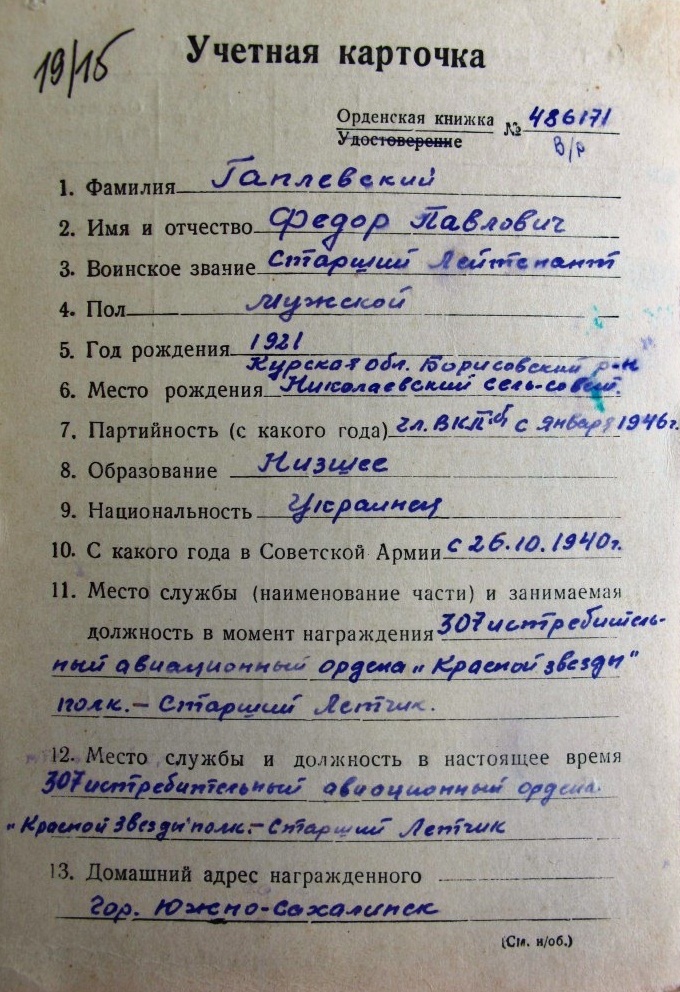 19/15
Учетная карточка
Орденская книжка
Удостоверение № 486171
в/р
1. Фамилия Гаплевский
2. Имя и отчество Федор Павлович
3. Воинское звание Старший Лейтенант
4. Пол мужской
5. Год рождения 1921
Курская обл. Борисовский р-н
6. Место рождения Николаевский сель-совет.
7. Партийность (с какого года) чл. ВКП/б с января 1946г.
8. Образование Низшее
9. Национальность Украинец
10. С какого года в Советской Армии с 26.10.1940г.
11. Место службы (наименование части) и занимаемая
должность в момент награждения 307 истребитель-
ный авиационный ордена „Красной звезды"
полк. – Старший Летчик.
12. Место службы и должность в настоящее время
307 истребительный авиационный ордена
„Красной Звезды" полк. – Старший Летчик
13. Домашний адрес награжденного
гор. Южно-Сахалинск
(См. н/об.)